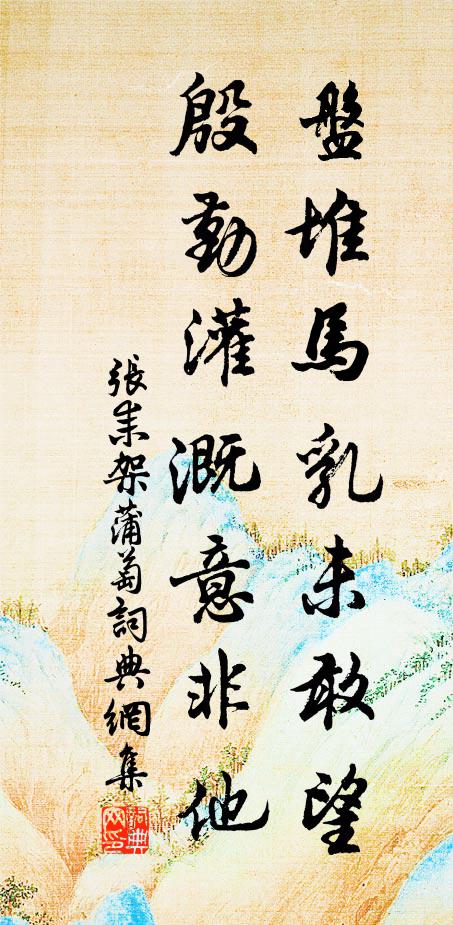 盤堆馬乳未敢望
殷勤灌溉意非他
張耒架蒲萄詞典網集
詞典
网印